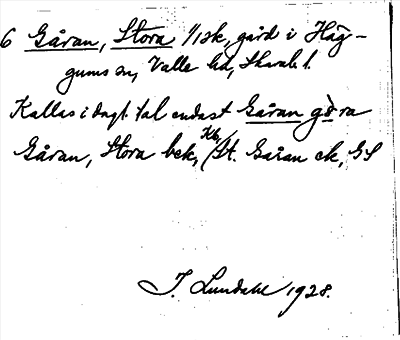 6 Gåran, Stora 1/1 sk, gård i Häg-
gums sn, Valle hd, Skarab. l.
Kallas i dagl. tal endast Gåran gò̱ra
Gåran, Stora bek, Kb, (St. Gåran ek, GS
I. Lundahl 1928.